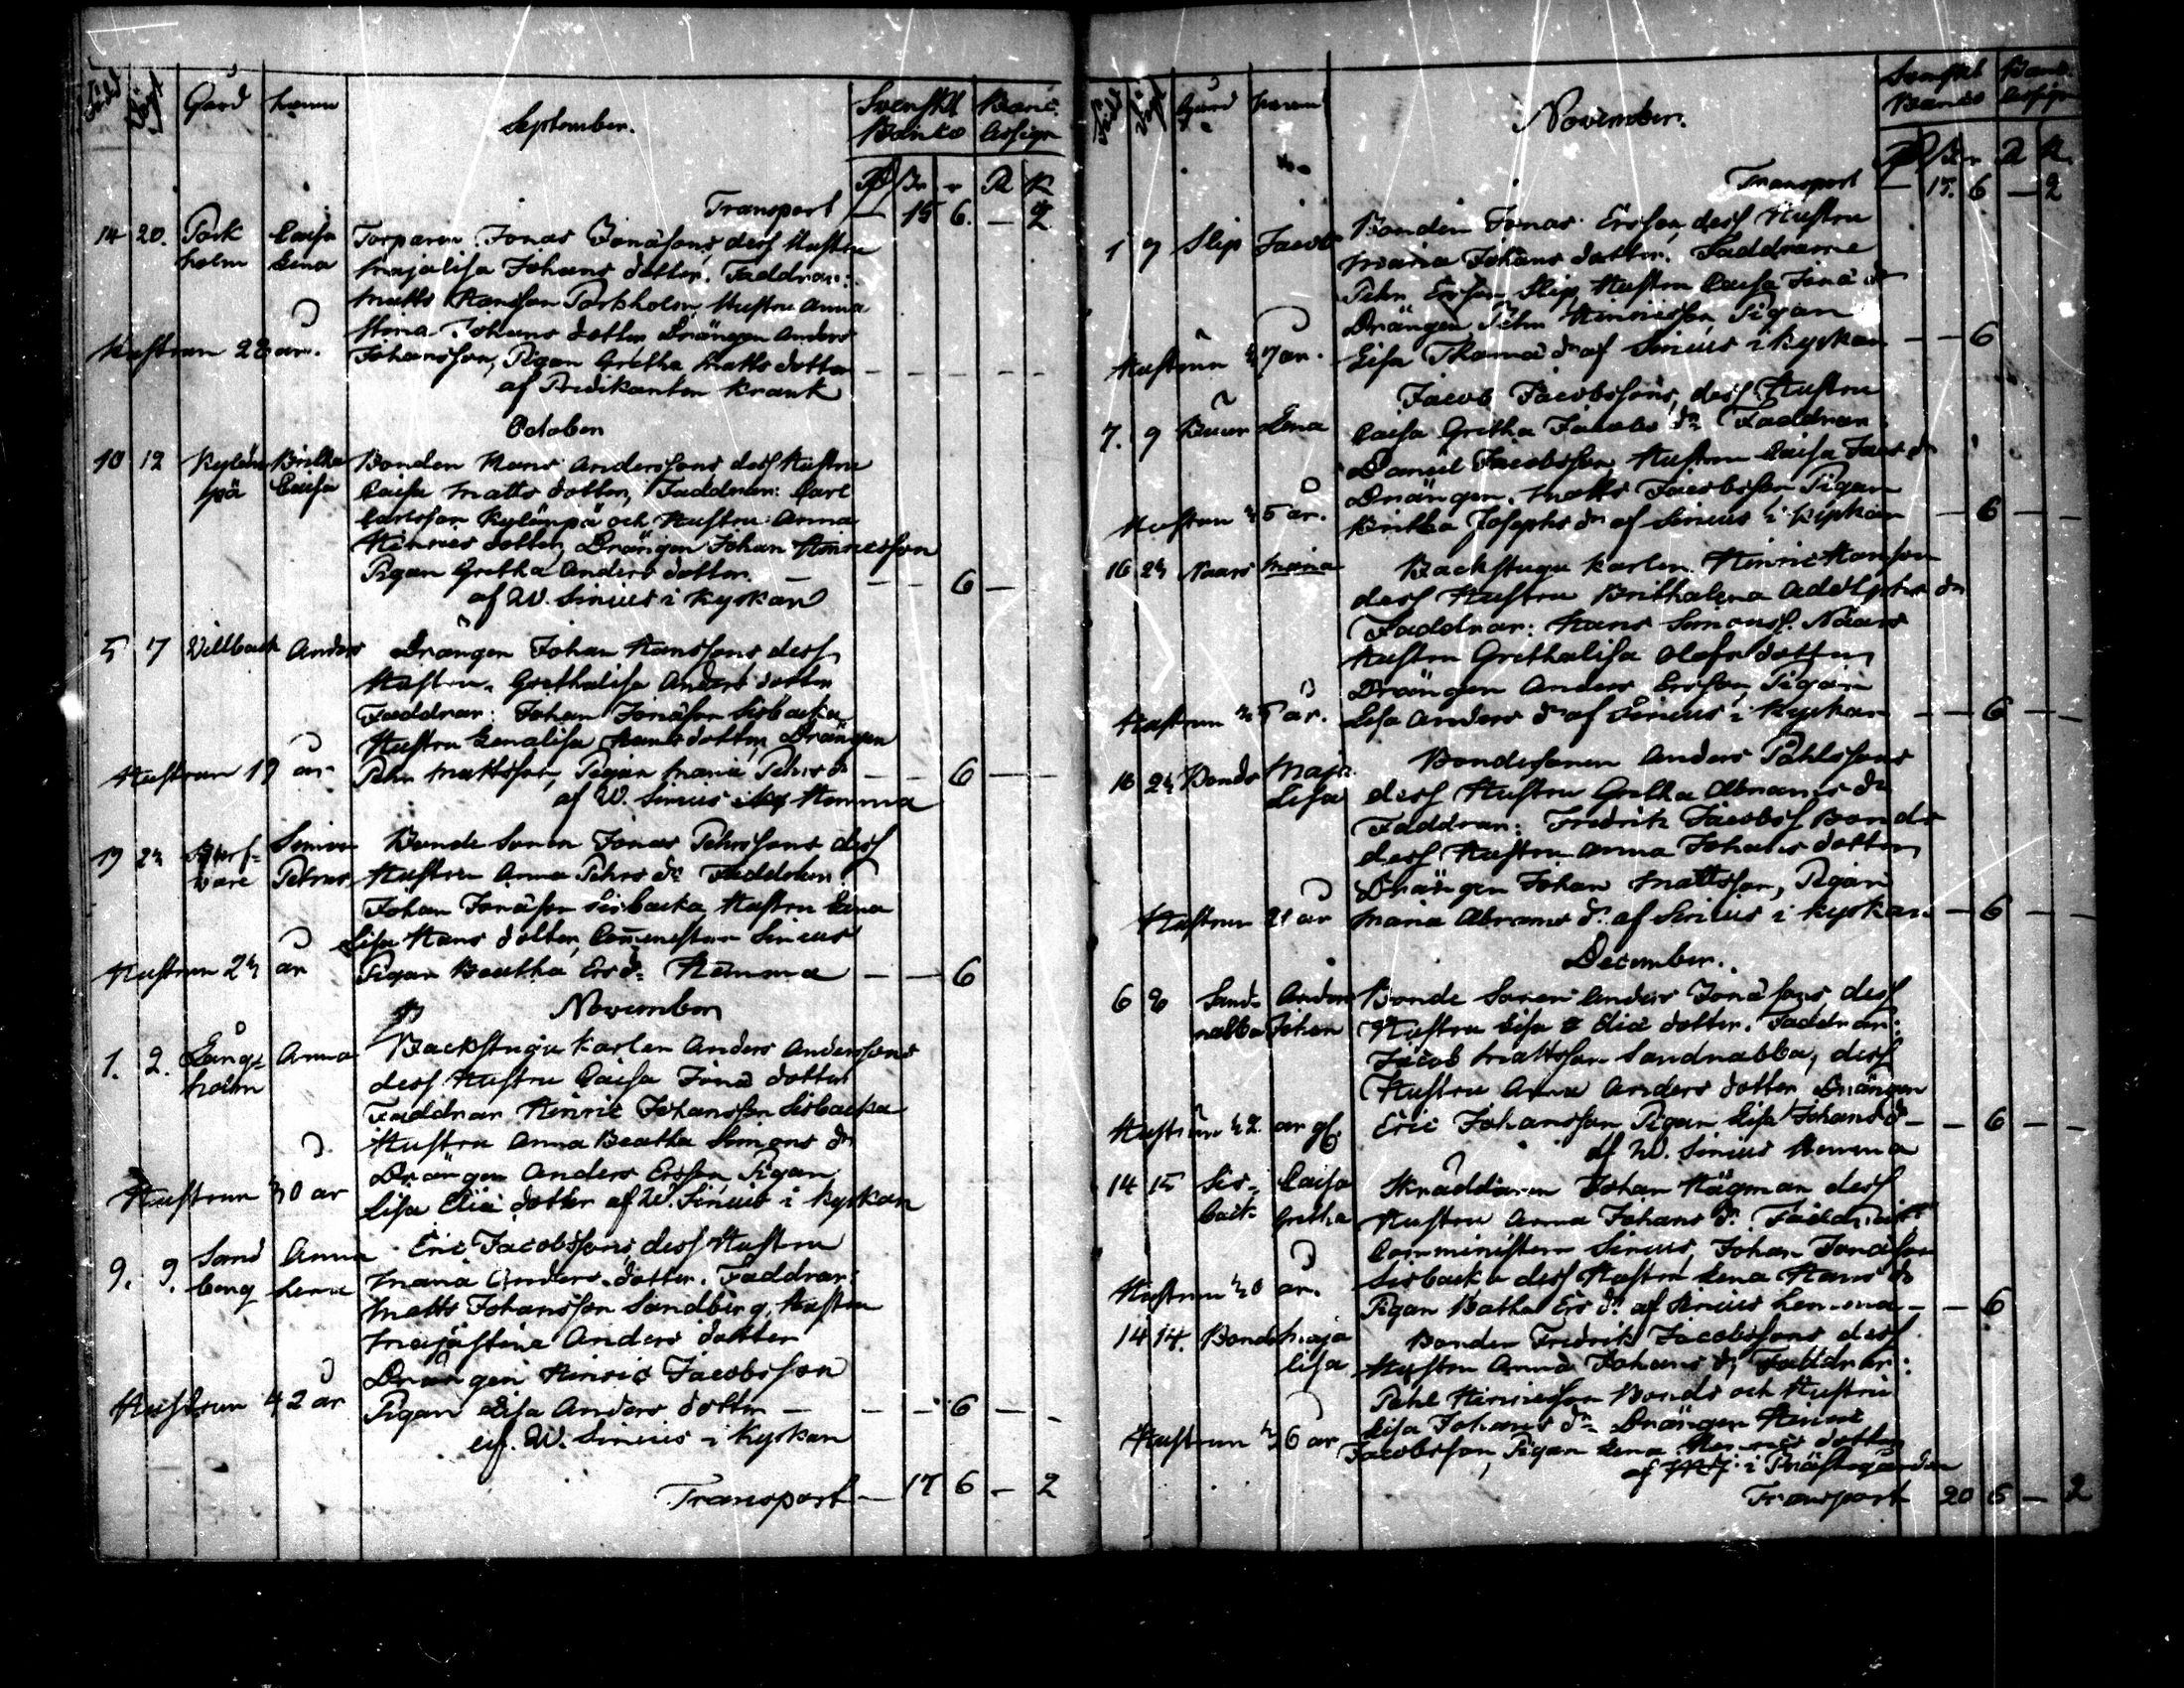 Född Döpt Gård hemn September. Svenskt Banco Banc. Assign
Transport — 15 6. — 2
14 20. Pork holm Caisa Lena Torparen Jonas Jonässons dess Hustru
Majalisa Johans dotter. Faddrar:
Matts Hansson Porkholm, Hustru Anna
Stina Johans dotter Drängen Anders
Hustrun 28 år. Johansson, Pigan Gretha Matts dotter
af Predikanten Krank
October
10 12 Kylöm pä Britha Caisa Bonden Hans Anderssons dess Hustru
Caisa Matts dotter, Faddrar: Carl
Carlsson Kylömpä och Hustru Anna
Hinrics dotter, Drängen Johan Hinricsson
Pigan Gretha Anders dotter. — — — 6 —
af W. Sirelius i Kyrkan
5 7 Villback Anders Drängen Johan Hanssons dess
Hustru Grethalisa Anders dotter
Faddrar: Johan Jonäson Sisbacka
Hustru Lenalisa Hans dotter, Drängen
Hustrun 19 år Pehr Mattsson, Pigan Maria Pehrs dr — — 6 — —
af W. Sirelius Hemma
19 23 Simon Petrus Bonde Sonen Jonas Pehrssons dess
Hustru Anna Pehrs dr Faddrar
Johan Jonäson Sisbacka, Hustru Lena
Lisa Hans dotter,
Hustrun 23 år Pigan Beatha Ers dr Hemma — — 6
November
1. 2. Lång= holm Anna Backstugu Karlen Anders Anderssons
dess Hustru Caisa Jonä dotter
Faddrar Hinric Johansson Sisbacka
Hustru Anna Beatha Simons dr
Drängen Anders Ersson, Pigan
Hustrun 30 år Lisa Eliä dotter af W. Sirelius i Kyrkan
9. 9. Sand berg Anna Lena Eric Jacobssons, dess Hustru
Maria Anders dotter. Faddrar:
Matts Johansson Sandberg, Hustru
Majastina Anders dotter
Drängen Hinric Jacobsson
Hustrun 42 år Pigan Lisa Anders dotter — — — 6 — —
af W. Sirelius i Kyrkan
Transport — 17 6 — 2
Född Döpt Gård hemn November. Svenskt Banco Banc. Assign
Transport — 15. 6 — 2
1 9 Slip Jacob Bonden Jonas Ersson, dess Hustru
Maria Johans dotter. Faddrarne
Pehr Ersson Slip, Hustru Caisa Jonä dr
Drängen Pehr Hinricsson Pigan
Hustrun 37 år. Lisa Thomä dr af Sirelius i Kyrkan — — 6
Jacob Jacobssons, dess Hustru
7. 9 Lena Caisa Gretha Jacobs dr Faddrar:
Daniel Jacobsson, Hustru Caisa Jacobs dr
Drängen Matts Jacobsson Pigan
Hustrun 35 år. Britha Josephs dr af Sirelius i Kyrkan — 6 — —
16 23 Naars Maria Backstugu Karlen Hinric Hansson
dess Hustru Brithalena Adolphs dr
Faddrar: Hans Simonss. Naars
Hustru Grethalisa Olofs dotter
Drängen Anders Ersson Pigan
Hustrun 35 år. Lisa Anders dr af Sirelius i Kyrkan — — 6 — —
16 23 Bonds Maja Lisa Bondesonen Anders Påhlssons
dess Hustru Gretha Abrams dr
Faddrar: Fredrik Jacobss Bonds
dess Hustru Anna Johans dotter
Drängen Johan Mattsson, Pigan
Hustrun 21 år Maria Abrams dr af Sirelius i Kyrkan — 6 — —
December.
6 8 Sand= nabba Anders Johan Bonde Sonen Anders Jonäsons dess
Hustru Lisa Eliä dotter. Faddrar:
Jacob Mattsson Sandnabba, dess
Hustru Anna Anders dotter Drängen
Hustrun 32 år gl. Eric Johansson Pigan Lisa Johans dr — — 6 — —
af W. Sirelius Hemma
14 15 Sis= back Caisa Gretha Skräddaren Johan Hägman dess
Hustru Anna Johans dr Faddrar
Comministern Sirelius, Johan Jonäson
Sisbacka dess Hustru Lena Hans dr
Hustrun 30 år. Pigan Batha Ers dr af Sirelius hemma — — 6
14 14. Bonds Maja lisa Bonden Fredrik Jacobssons dess
Hustru Anna Johans dr, Faddrar:
Pehl Hinricsson Bonds och Hustru
Lisa Johans dr Drängen Hinric
Hustrun 36 år Jacobsson, Pigan Lena Hinrics dotter
af i Prästegården
Transport 20 6 — 2